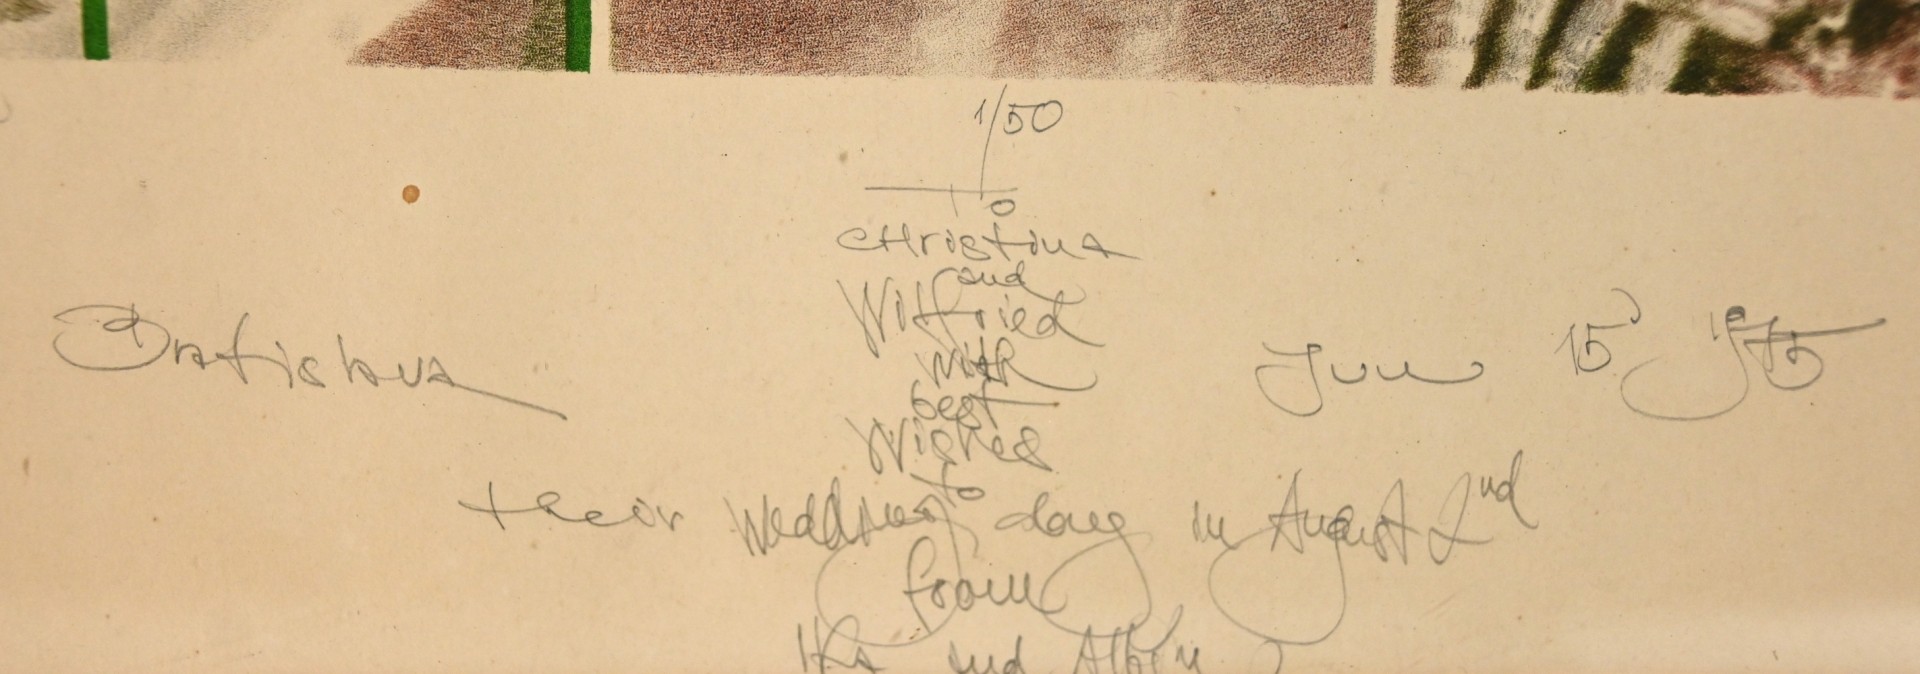 1/50
To
Christina
and
Wilfried
with
best
Wishes
Bratislava
June 15 1975
to
their Wedding day in August 2nd
from
and Albín